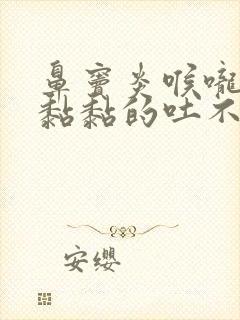 鼻竇炎喉嚨
黏黏的吐不
安缨